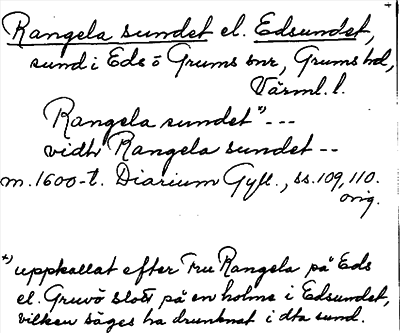 Rangela sundet el. Edsundet,
sund i Eds o Grums snr, Grums hd,
Värml. l.
Rangela sundet *) ---
vidh Rangela sundet --
m. 1600-t. Diarium Gyll., ss. 109, 110.
orig.
*) uppkallat efter Fru Rangela på Eds
el. Gruvö slott på en holme i Edsundet,
vilken säges ha drunknat i dta sund.